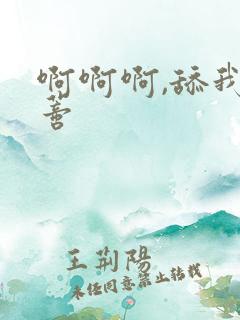 啊啊啊,舔我
蕃
王荊陽
未经同意禁止转载